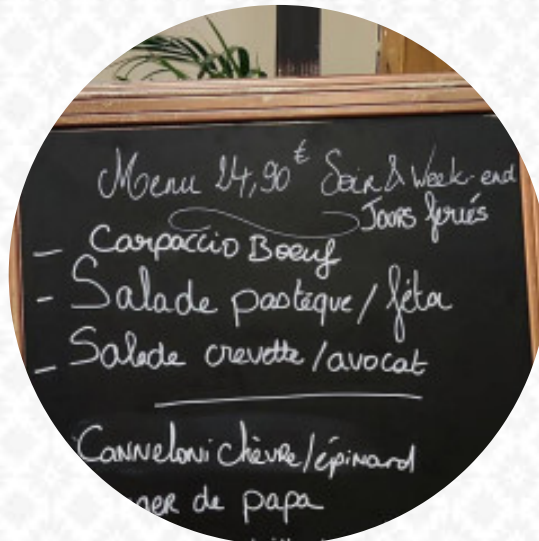 Menu 24,90€ Soir & Week-end
Jours feriés
- Carpaccio Boeuf
- Salade pastèque / féta
- Salade crevette / avocat
Canneloni chèvre / épinard
de papa